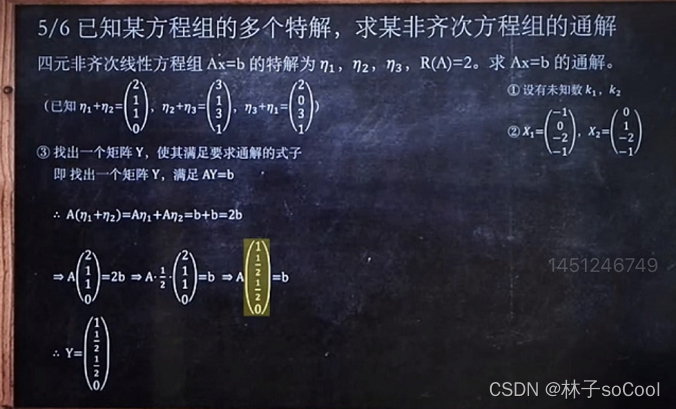 5/6 已知某方程组的多个特解，求某非齐次方程组的通解
四元非齐次线性方程组 Ax=b 的特解为 η₁，η₂，η₃，R(A)=2。求 Ax=b 的通解。
（已知 η₁+η₂=(2 1 1 0)，η₂+η₃=(3 1 3 1)，η₃+η₁=(2 0 3 1)）
① 设有未知数 k₁，k₂
② X₁=(−1 0 −2 −1)，X₂=(0 1 −2 −1)
③ 找出一个矩阵 Y，使其满足要求通解的式子
即 找出一个矩阵 Y，满足 AY=b
∴ A(η₁+η₂)=Aη₁+Aη₂=b+b=2b
⇒ A(2 1 1 0)=2b ⇒ A·1/2·(2 1 1 0)=b ⇒ A(1 1/2 1/2 0)=b
∴ Y=(1 1/2 1/2 0)
1451246749
CSDN @林子soCool